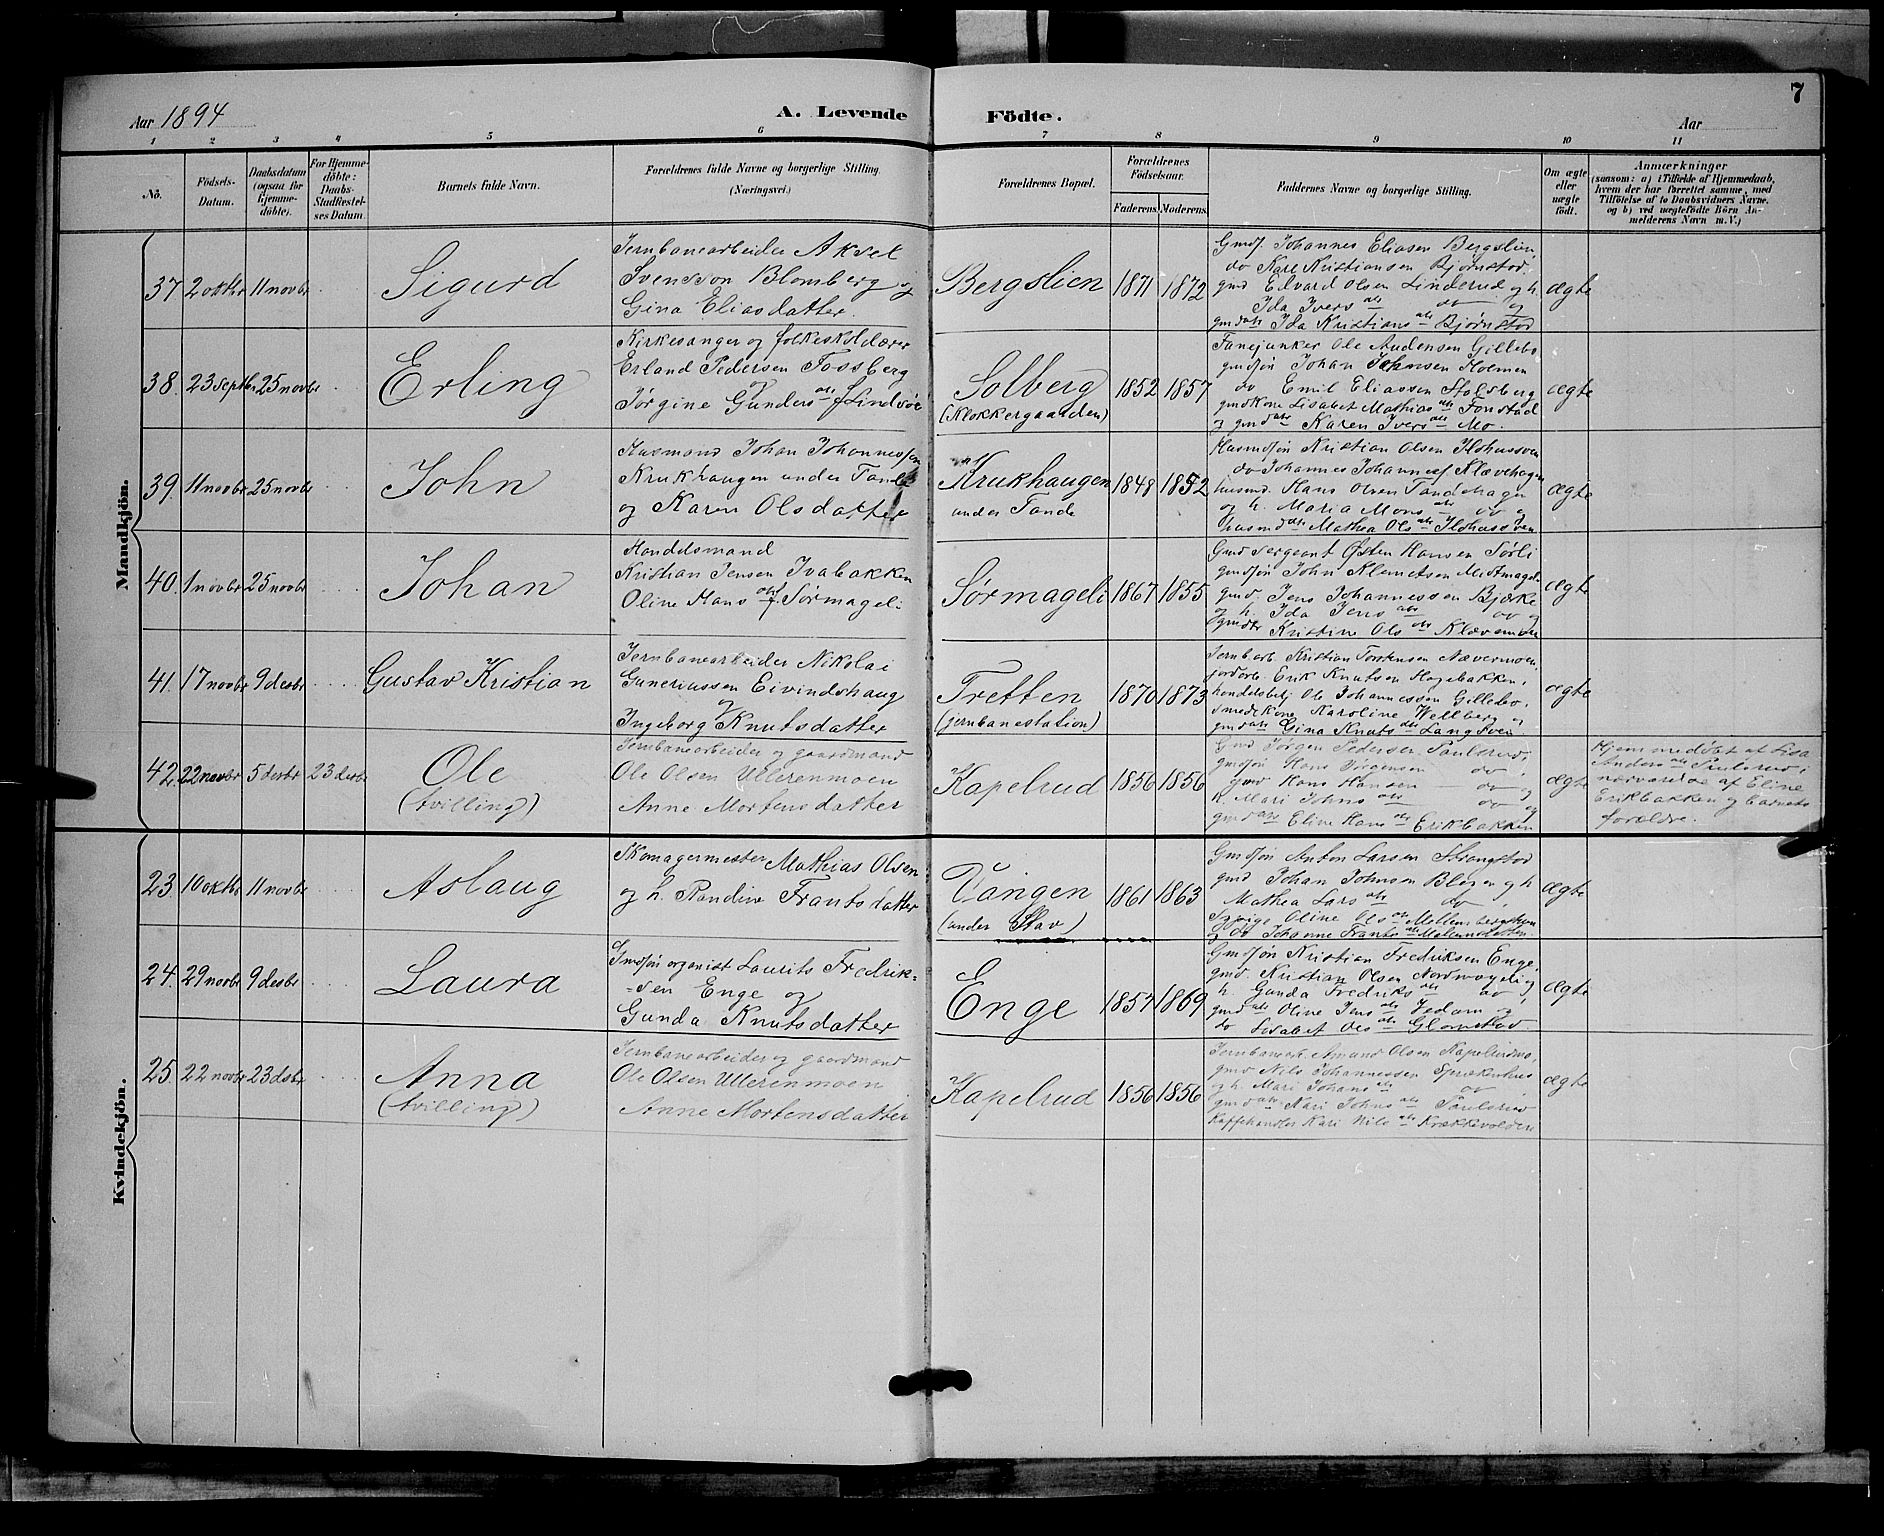 7
Aar 1894
A. Levende Födte.
Aar
1 2 3 4 5 6 7 8 9 10 11
No.
Födsels-Datum.
Daabsdatum (ogsaa for hjemme-döbte).
For Hjemme-döbte: Daabs-Stadfæstel-ses Datum.
Barnets fulde Navn.
Forældrenes fulde Navne og borgerlige Stilling (Næringsvei.)
Forældrenes Bopæl.
Forældrenes Födselsaar.
Faderens. Moderens.
Faddernes Navne og borgerlige Stilling.
Om ægte eller uægte födt.
Anmærkninger
(saasom: a) i Tilfælde af Hjemmedaab, hvem der har forrettet samme, med Tilföielse af to Daabsvidners Navne, og b) ved uægtefödte Börn An-melderens Navn m. V.)
Mandkjön.
37 2 oktbr 11 novbr
Sigurd
Jernbanearbeider Aksel
Svensson Blomberg og
Gina Eliasdatter
Bergslien 1871 1872
Gmdf. Johannes Eliasen Bergslien,
do Karl Kristiansen Bjørnstad,
gmd Edvard Olsen Linderud og h.
Ida Ivers dtr do og
gmd dtr Ida Kristians dtr Bjørnstad
ægte
38. 23 septbr 25 novbr
Erling
Kirkesanger og folkeskolelærer
Erland Pedersen Fossberg
og
Jørgine Gunders dtr f. Lindsöe
Solberg
(Klokkergaarden)
1852 1857
Fanejunker Ole Audensen Gillebo
gmdsjön Johan Johnsen Holmen
do Emil Eliassen Stolsberg
gmdkone Lisabet Mathias dtr Fonstad
og gmd dtr Karen Ivers dtr Mo.
ægte
39. 11 novbr 25 novbr
John
Husmand Johan Johannessen
Krukhaugen under Tande
og Karen Olsdatter
Krukhaugen
under Tande
1848 1852
Husmdsjön Kristian Olsen
do Johannes Johannes Klævehagen
husmd. Hans Olsen Tandehagen
og h. Maria Mons dtr do og
husmd dtr Mathea Ols dtr
ægte
40. 1 novbr 25 novbr
Johan
Handelsmand
Kristian Jensen Ivabakken
Oline Hans dtr f. Sørmageli
Sørmageli 1867 1855
Gmd sergeant Østen Hansen Sørli
gmdsjön John Klemetsen Midtmageli
gmd. Jens Johannessen Bjerke
og h. Ida Jens dtr do og
gmdtr Kristine Ols dtr
ægte
41. 17 novbr 9 desbr
Gustav Kristian
Jernbanearbeider Nikolai
Guneriussen Eivindshaug
og
Ingeborg Knutsdatter
Tretten
(jernbanestation)
1870 1873
Jernb.arb. Kristian Torstensen Nævermoen,
jordarb. Erik Knutsen Hagebakken,
handelsbetj Ole Johannessen Gillebo,
smedekone Karoline Wellberg og
gmd dtr Gina Knuts dtr Langsven
ægte
42. 22 novbr 5 desbr 23 desbr
Ole
(tvilling)
Jernbanearbeider og gaardmand
Ole Olsen Ullerenmoen
Anne Mortensdatter
Kapelrud 1856 1856
Gmd Jörgen Pedersen Paulsrud,
gmdsjön Hans Jörgensen do,
gmd Hans Hansen do og
h. Mari Johns dtr do og
gmd dtr Eline Hans dtr Erikbakken
ægte
Hjemmedøbt af Lisa
Anders dtr Paulsrud i
nærværelse af Eline
Erikbakken og barnets
forældre.
Kvindekjön.
23. 10 oktbr 11 novbr
Aslaug
Skomagermester Mathias Olsen
og h. Randine Frantsdatter
Vangen
(under Stav)
1861 1863
Gmdsjön Anton Larsen Strangstad
gmd Johan Johnsen Bleger og h
Mathea Lars dtr do,
Sypige Oline Ols dtr
og do Johanne Frants dtr
ægte
24. 29 novbr 9 desbr
Laura
Gmdsjön organist Laurits Fredrik-
sen Enge og
Gunda Knutsdatter
Enge 1857 1869
Gmdsjön Kristian Fredriksen Enge,
gmd. Kristian Olsen Nordmageli og
h. Gunda Fredriks dtr do,
gmd dtr Oline Jens dtr Jedam og
do Lisabet Ols dtr Glomstad
ægte
25. 22 novbr 23 desbr
Anna
(tvilling)
Jernbanearbeider og gaardmand
Ole Olsen Ullerenmoen
Anne Mortensdatter
Kapelrud 1856 1856
Jernbanearb. Amund Olsen Kapelrud,
gmd Nils Johannessen Sprækenhus
og h. Mari Johans dtr do,
gmd dtr Kari Johns dtr Paulsrud
Kaffehandler Kari Nils dtr Krækkevolden
ægte